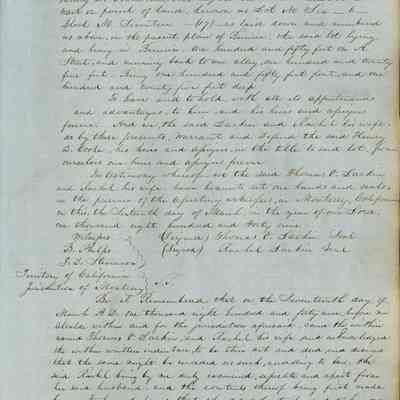 and or parcel of land, known as Lot No Six — 6 —
Block No Seventeen — 17 — as laid down and numbered
as above, on the present plan of Benicia, the said lot lying
and being in Benicia One hundred and fifty feet on A
Street, and running back to one alley, one hundred and twenty
five feet. Being one hundred and fifty feet front, and one
hundred and twenty five feet deep
To have and to hold with all its appurtenances
and advantages, to him and his heirs and assigns
forever. And we, the said Larkin and Rachel his wife,
do by these presents, warrant and defend the said Henry
D. Cooke, his heirs and assigns, in the title to said lot, from
ourselves our heirs and assigns forever
In testimony whereof we the said Thomas O. Larkin
and Rachel his wife have hereunto set our hands and seals,
in the presence of the subscribing witnesses, in Monterey, California
on this the Sixteenth day of March, in the year of our Lord,
one thousand eight hundred and forty nine
Witnesses (Signed) Thomas O. Larkin Seal
B. Phelps (Signed) Rachel Larkin Seal
J. D. Stevenson
Territory of California
Jurisdiction of Monterey } S.S.
Be it Remembered that on the Seventeenth day of
March A.D. one thousand eight hundred and forty nine before an
Alcalde within and for the jurisdiction aforesaid, came the within
named Thomas O. Larkin, and Rachel his wife and acknowledged
the within written indenture, to be their act and deed and desired
that the same might be recorded as such, according to law, the
said Rachel being by me duly examined, separate and apart from
her said husband, and the contents thereof being first made